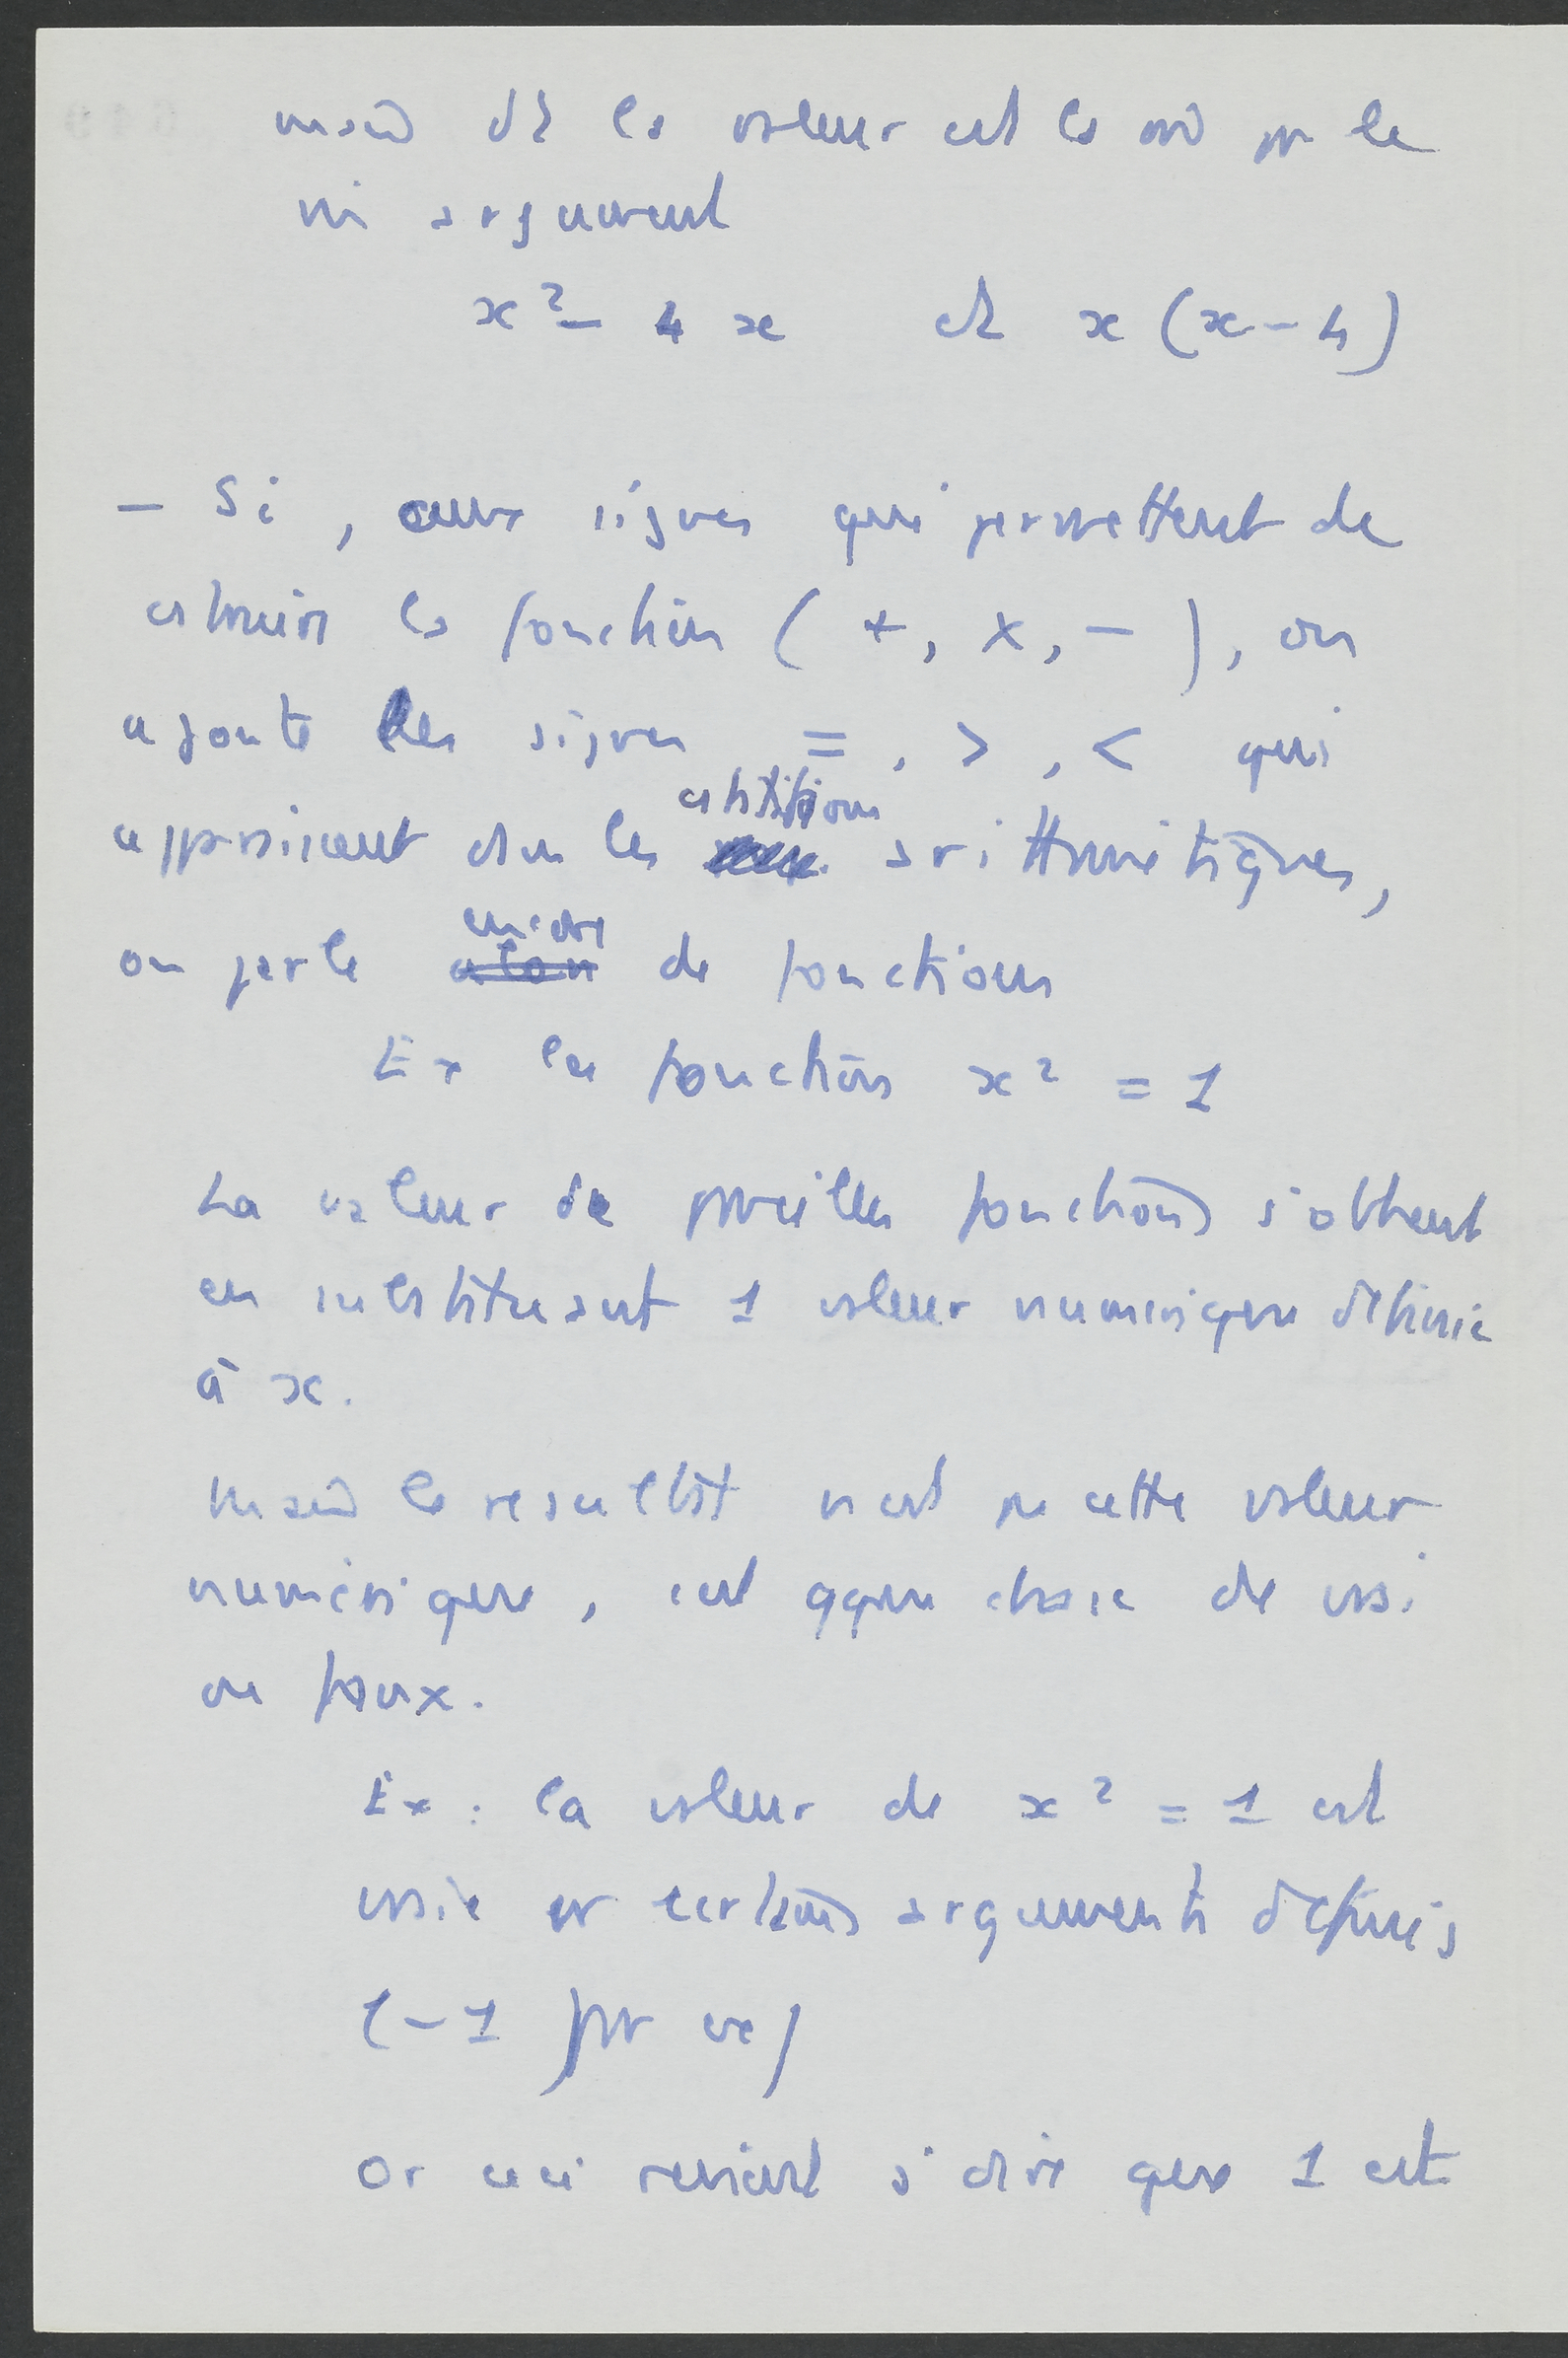 mais dt la valeur est la m̂ pr le
m̂ argument
x² - 4 x et x (x - 4)
- Si, aux signes qui permettent de
construire la fonction (+, x, -), on
ajoute les signes =, >, < qui
apparaissent dans les relations arithmétiques,
on parle encore alors de fonctions
Ex la fonction x² = 1
La valeur de pareilles fonctions s'obtient
en substituant 1 valeur numérique définie
à x.
Mais le resultat n'est pas cette valeur
numérique, c'est qque chose de vrai
ou faux.
Ex : la valeur de x² = 1 est
vraie pr certains arguments définis
(-1 pr ex)
Or ceci revient à dire que 1 est